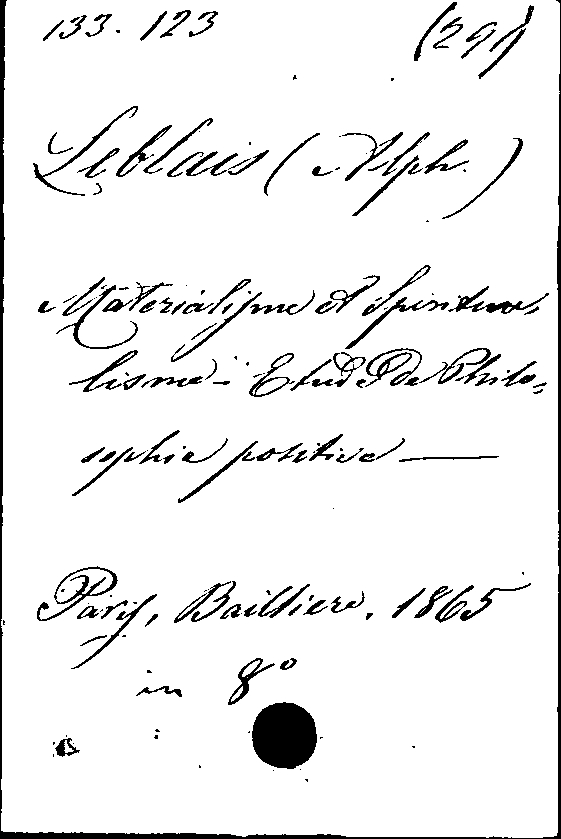 133.123 (291)
Leblais (Alph.)
Materialisme et Spiritua-
lisme - Etude de Philo-
sophie positive —
Paris, Bailliere, 1865
in 8°